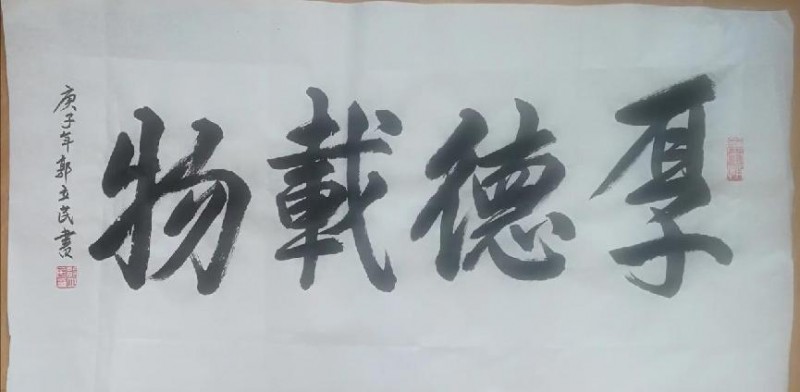 厚德載物
庚子年郭立民書